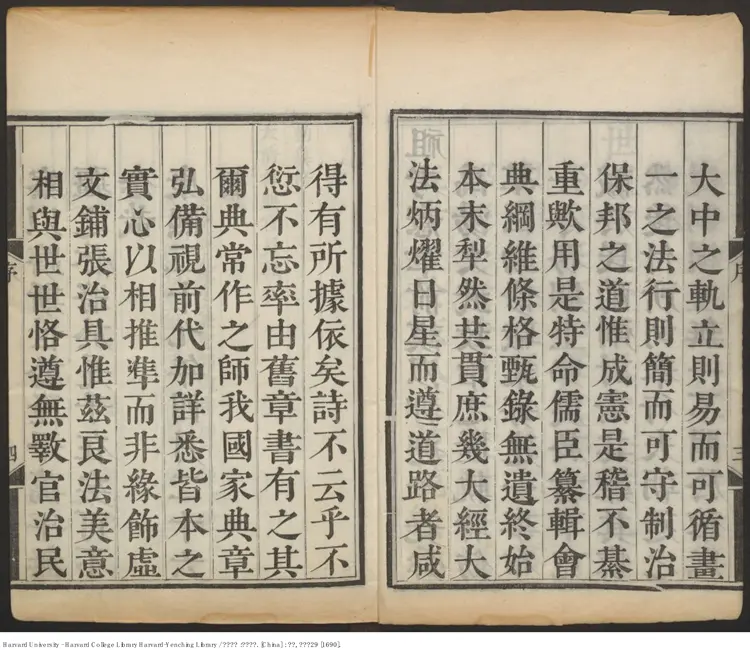 大中之軌立則易而可循畫
一之法行則簡而可守制治
保邦之道惟成憲是稽不綦
重歟用是特命儒臣纂輯會
典綱維條格甄錄無遺終始
本末犁然共貫庶幾大經大
法炳燿日星而遵道路者咸
得有所據依矣詩不云乎不
愆不忘率由舊章書有之其
爾典常作之師我國家典章
弘備視前代加詳悉皆本之
實心以相推準而非緣飾虛
文鋪張治具惟茲良法美意
相與世世恪遵無斁官治民
序
四
Harvard University - Harvard College Library Harvard-Yenching Library / ???? : ????. [China] : ??, ???29 [1690].